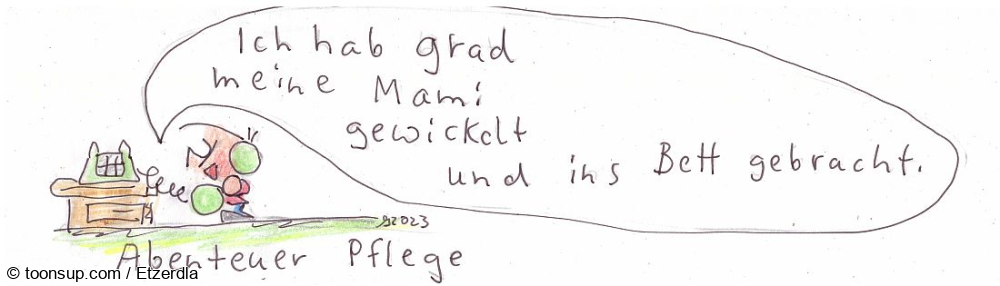 Ich hab grad
meine Mami
gewickelt
und ins Bett gebracht.
g2023
Abenteuer Pflege
© toonsup.com / Etzerdla